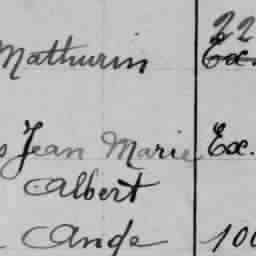 22
Mathurin Ex.
s Jean Marie Ex.
Albert
Ange 100